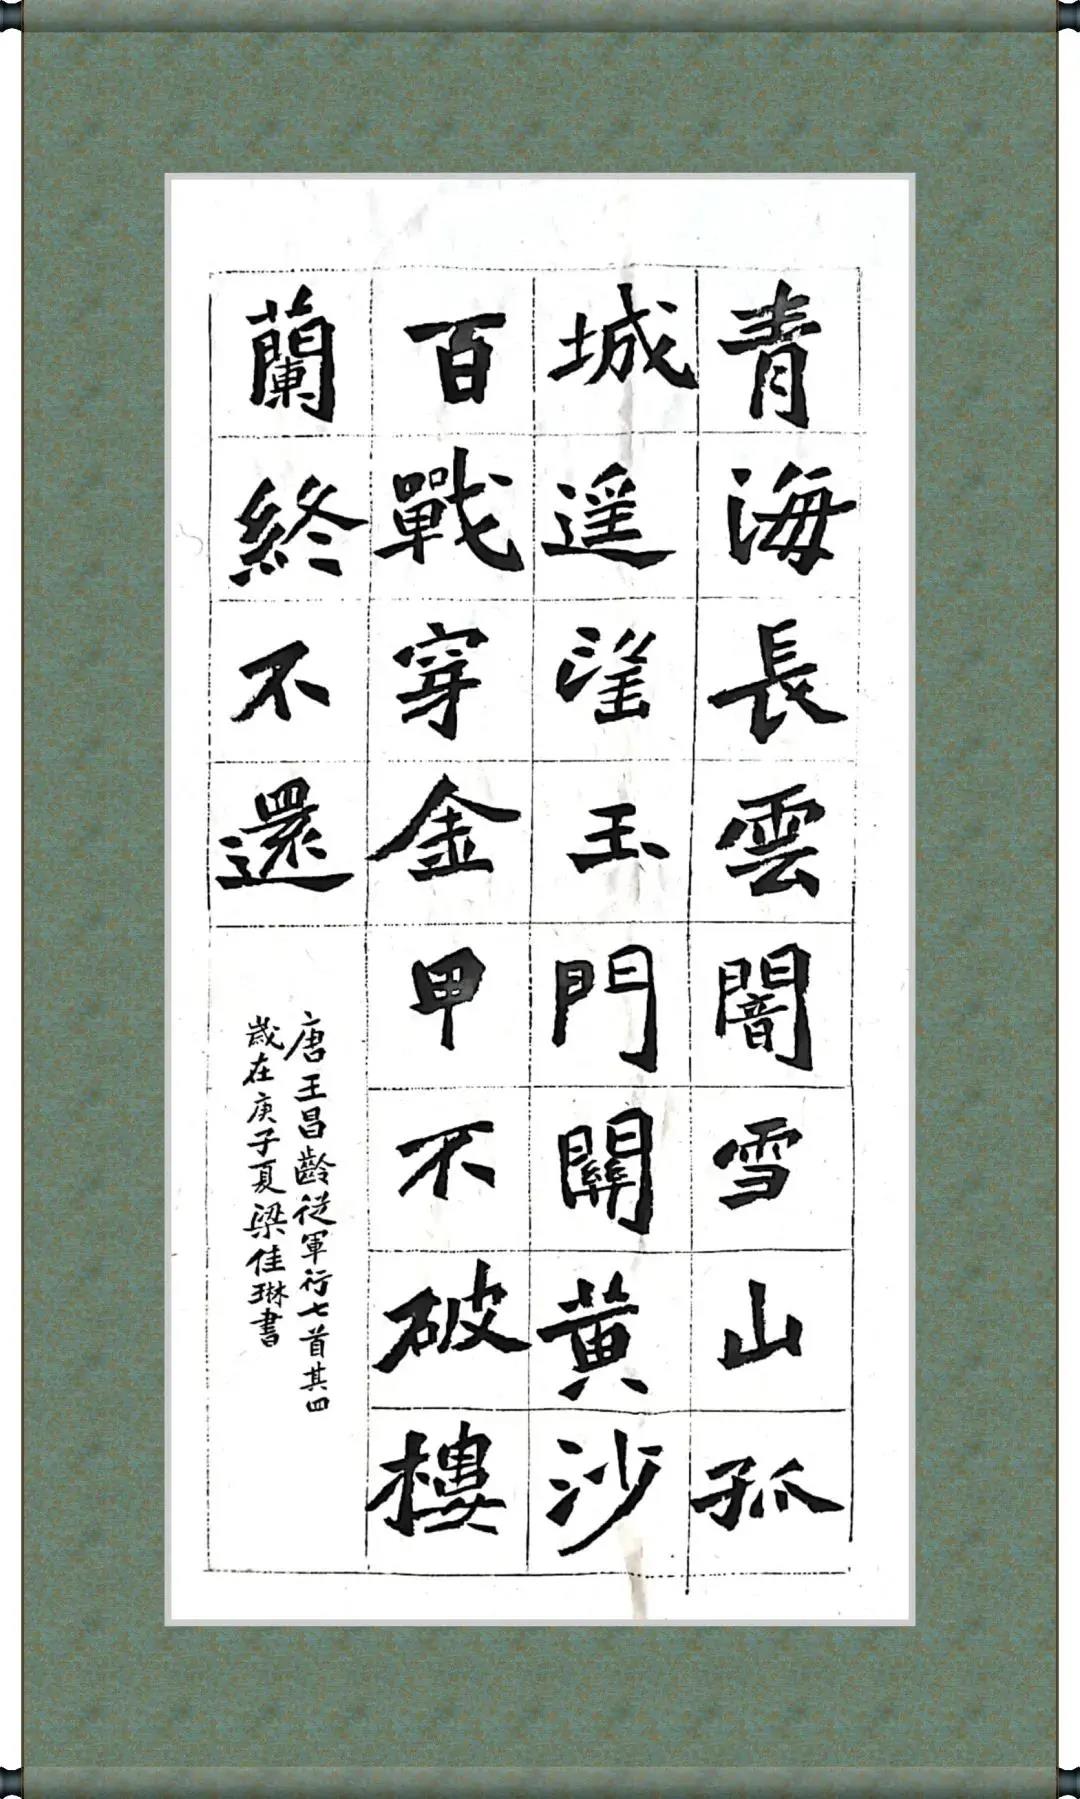 青海長雲闇雪山孤
城遥望玉門關黄沙
百戰穿金甲不破樓
蘭終不還
唐王昌齡從軍行七首其四
歲在庚子夏梁佳琳書